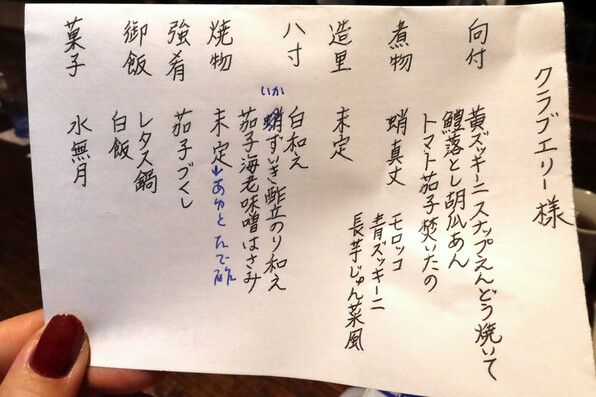 クラブエリー様
向付
黄ズッキーニスナップえんどう焼いて
鱧落とし胡瓜あん
トマト茄子焚いたの
煮物
蛸真丈
モロッコ
青ズッキーニ
長芋じゅん菜風
造里
未定
八寸
白和え
いか
蛸ずいき酢立のり和え
茄子海老味噌はさみ
焼物
未定→あゆとたで酢
強肴
茄子づくし
御飯
レタス鍋
白飯
菓子
水無月